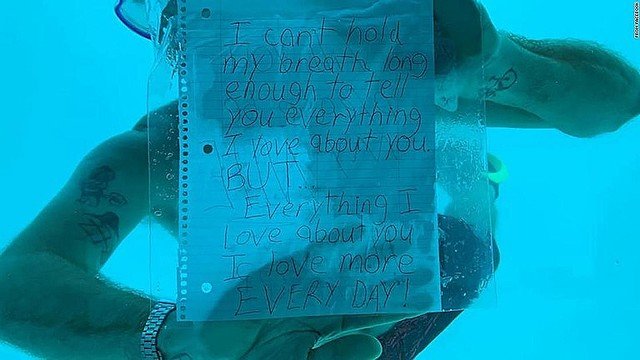 I can't hold
my breath long
enough to tell
you everything
I love about you.
BUT...
Everything I
Love about you
I love more
EVERY DAY!